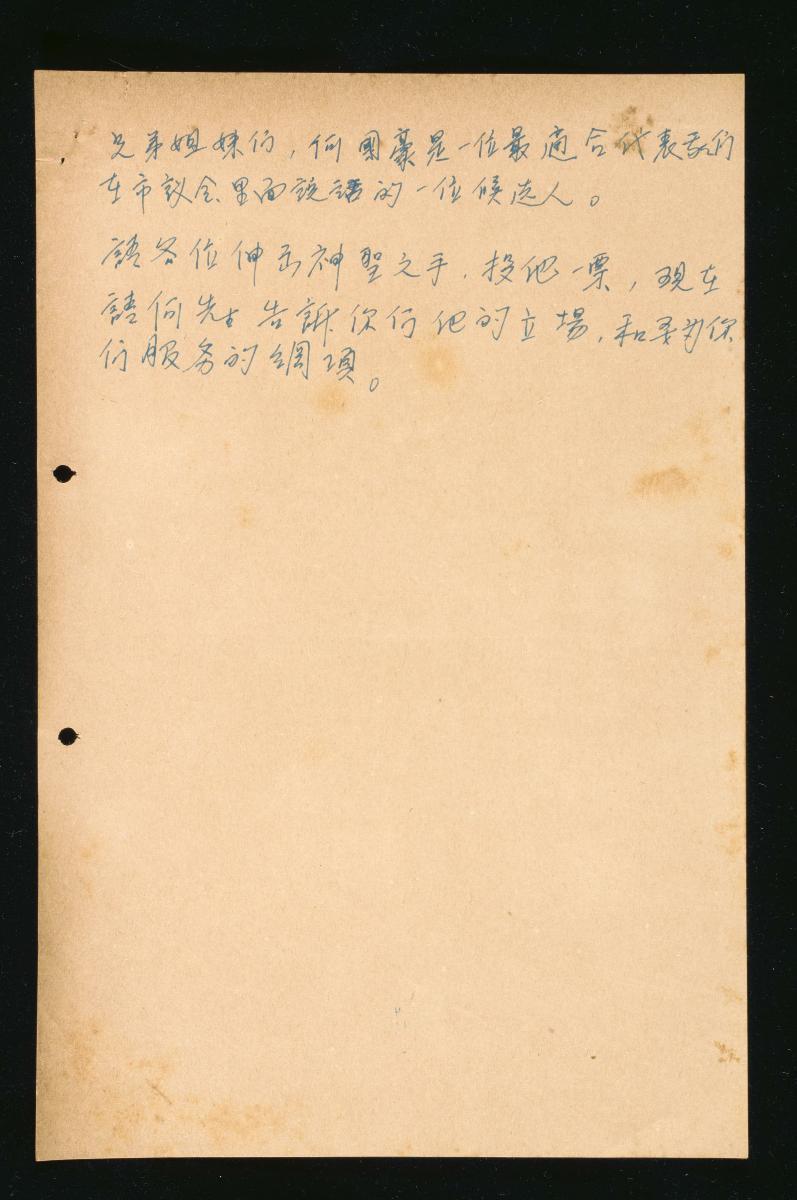 兄弟姐妹们，何國豪是一位最適合代表我们
在市議会里面說話的一位候选人。
請各位伸出神聖之手，投他一票，現在
請何先生告訴你们他的立場，和要为你
们服务的綱項。